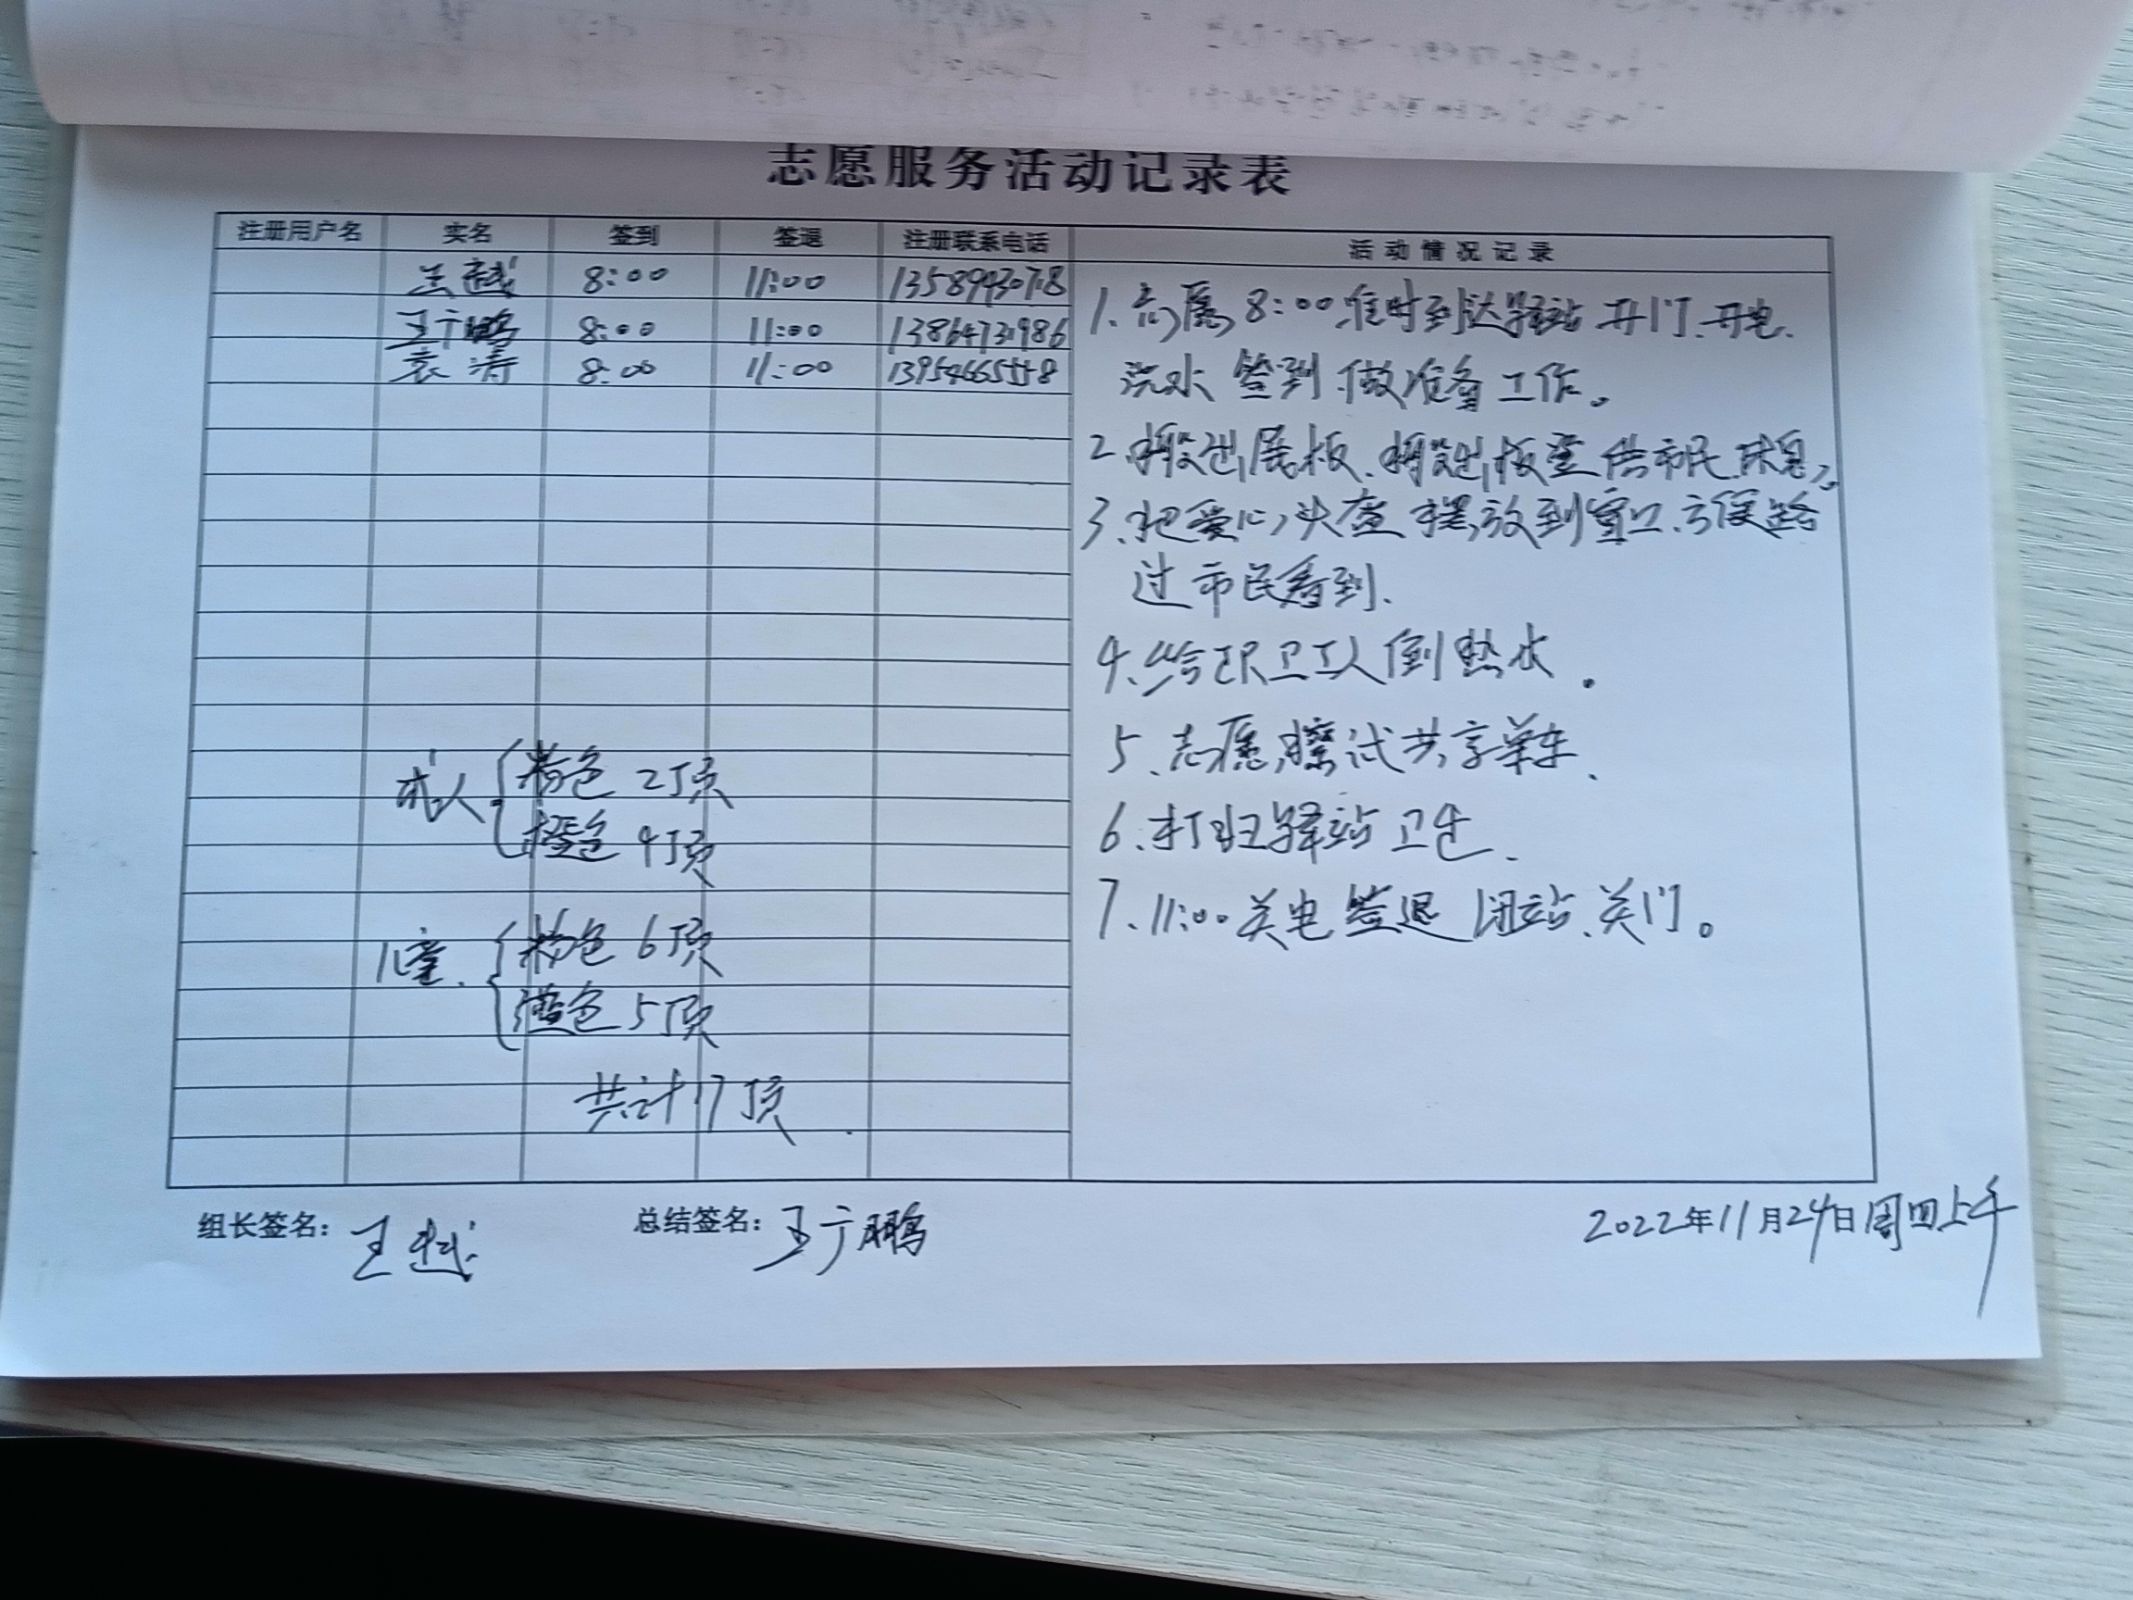 志愿服务活动记录表
注册用户名 实名 签到 签退 注册联系电话 活动情况记录
王越 8:00 11:00 13589430718
王广鹏 8:00 11:00 13864731986
袁涛 8:00 11:00 13954665558
1.志愿8:00准时到达驿站开门、开电、
洗水 签到 做准备工作。
2.搬出展板、搬出板凳供市民休息,
3.把爱心头盔摆放到窗口、方便路
过市民看到、
4、给环卫工人倒热水。
5、志愿擦试共享单车、
6、打扫驿站卫生、
7、11:00关电签退 闭站、关门。
成人 粉色 2顶
橙色 4顶
儿童、 粉色 6顶
蓝色 5顶
共计17顶
组长签名: 王越 总结签名: 王广鹏 2022年11月24日周四上午